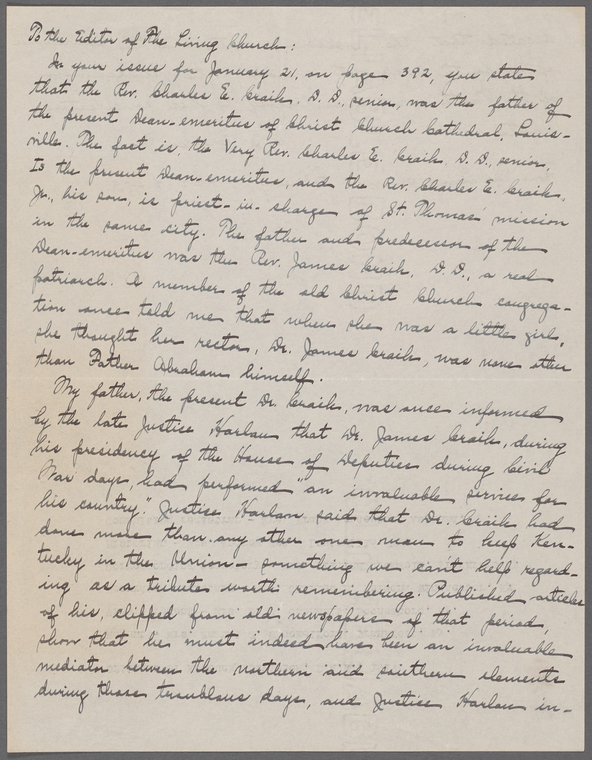 To the Editor of The Living Church:
In your issue for January 21, on page 392, you state
that the Rev. Charles E. Craik, D. D., senior, was the father of
the present Dean-emeritus of Christ Church Cathedral, Louis-
ville. The fact is, the Very Rev. Charles E. Craik, D. D., senior,
Is the present Dean-emeritus, and the Rev. Charles E. Craik,
Jr., his son, is priest-in-charge of St. Thomas' mission
in the same city. The father and predecessor of the
Dean-emeritus was the Rev. James Craik, D. D., a real
patriarch. A member of the old Christ Church congrega-
tion once told me that when she was a little girl,
she thought her rector, Dr. James Craik, was none other
than Father Abraham himself.
My father, the present Dr. Craik, was once informed
by the late Justice Harlan that Dr. James Craik, during
his presidency of the House of Deputies during Civil
War days, had performed "an invaluable service for
his country." Justice Harlan said that Dr. Craik had
done more than any other one man to keep Ken-
tucky in the Union - something we can't help regard-
ing as a tribute worth remembering. Published articles
of his, clipped from old newspapers of that period,
show that he must indeed have been an invaluable
mediator between the northern and southern elements
during those troublous days, and Justice Harlan in-